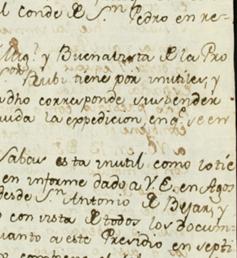 el Conde de S.n Pedro en re-
Mig.l y Buenavista de la Pro
Rubi tiene por inutiles, y
dho corresponde suspender
uida la expedicion, en q.e se en
Sabas esta inutil como lo tie
en informe dado a V.E. en Agos
desde S.n Antonio de Bejar, y
o con vista de todos los docum-
uanto a este Presidio en septi